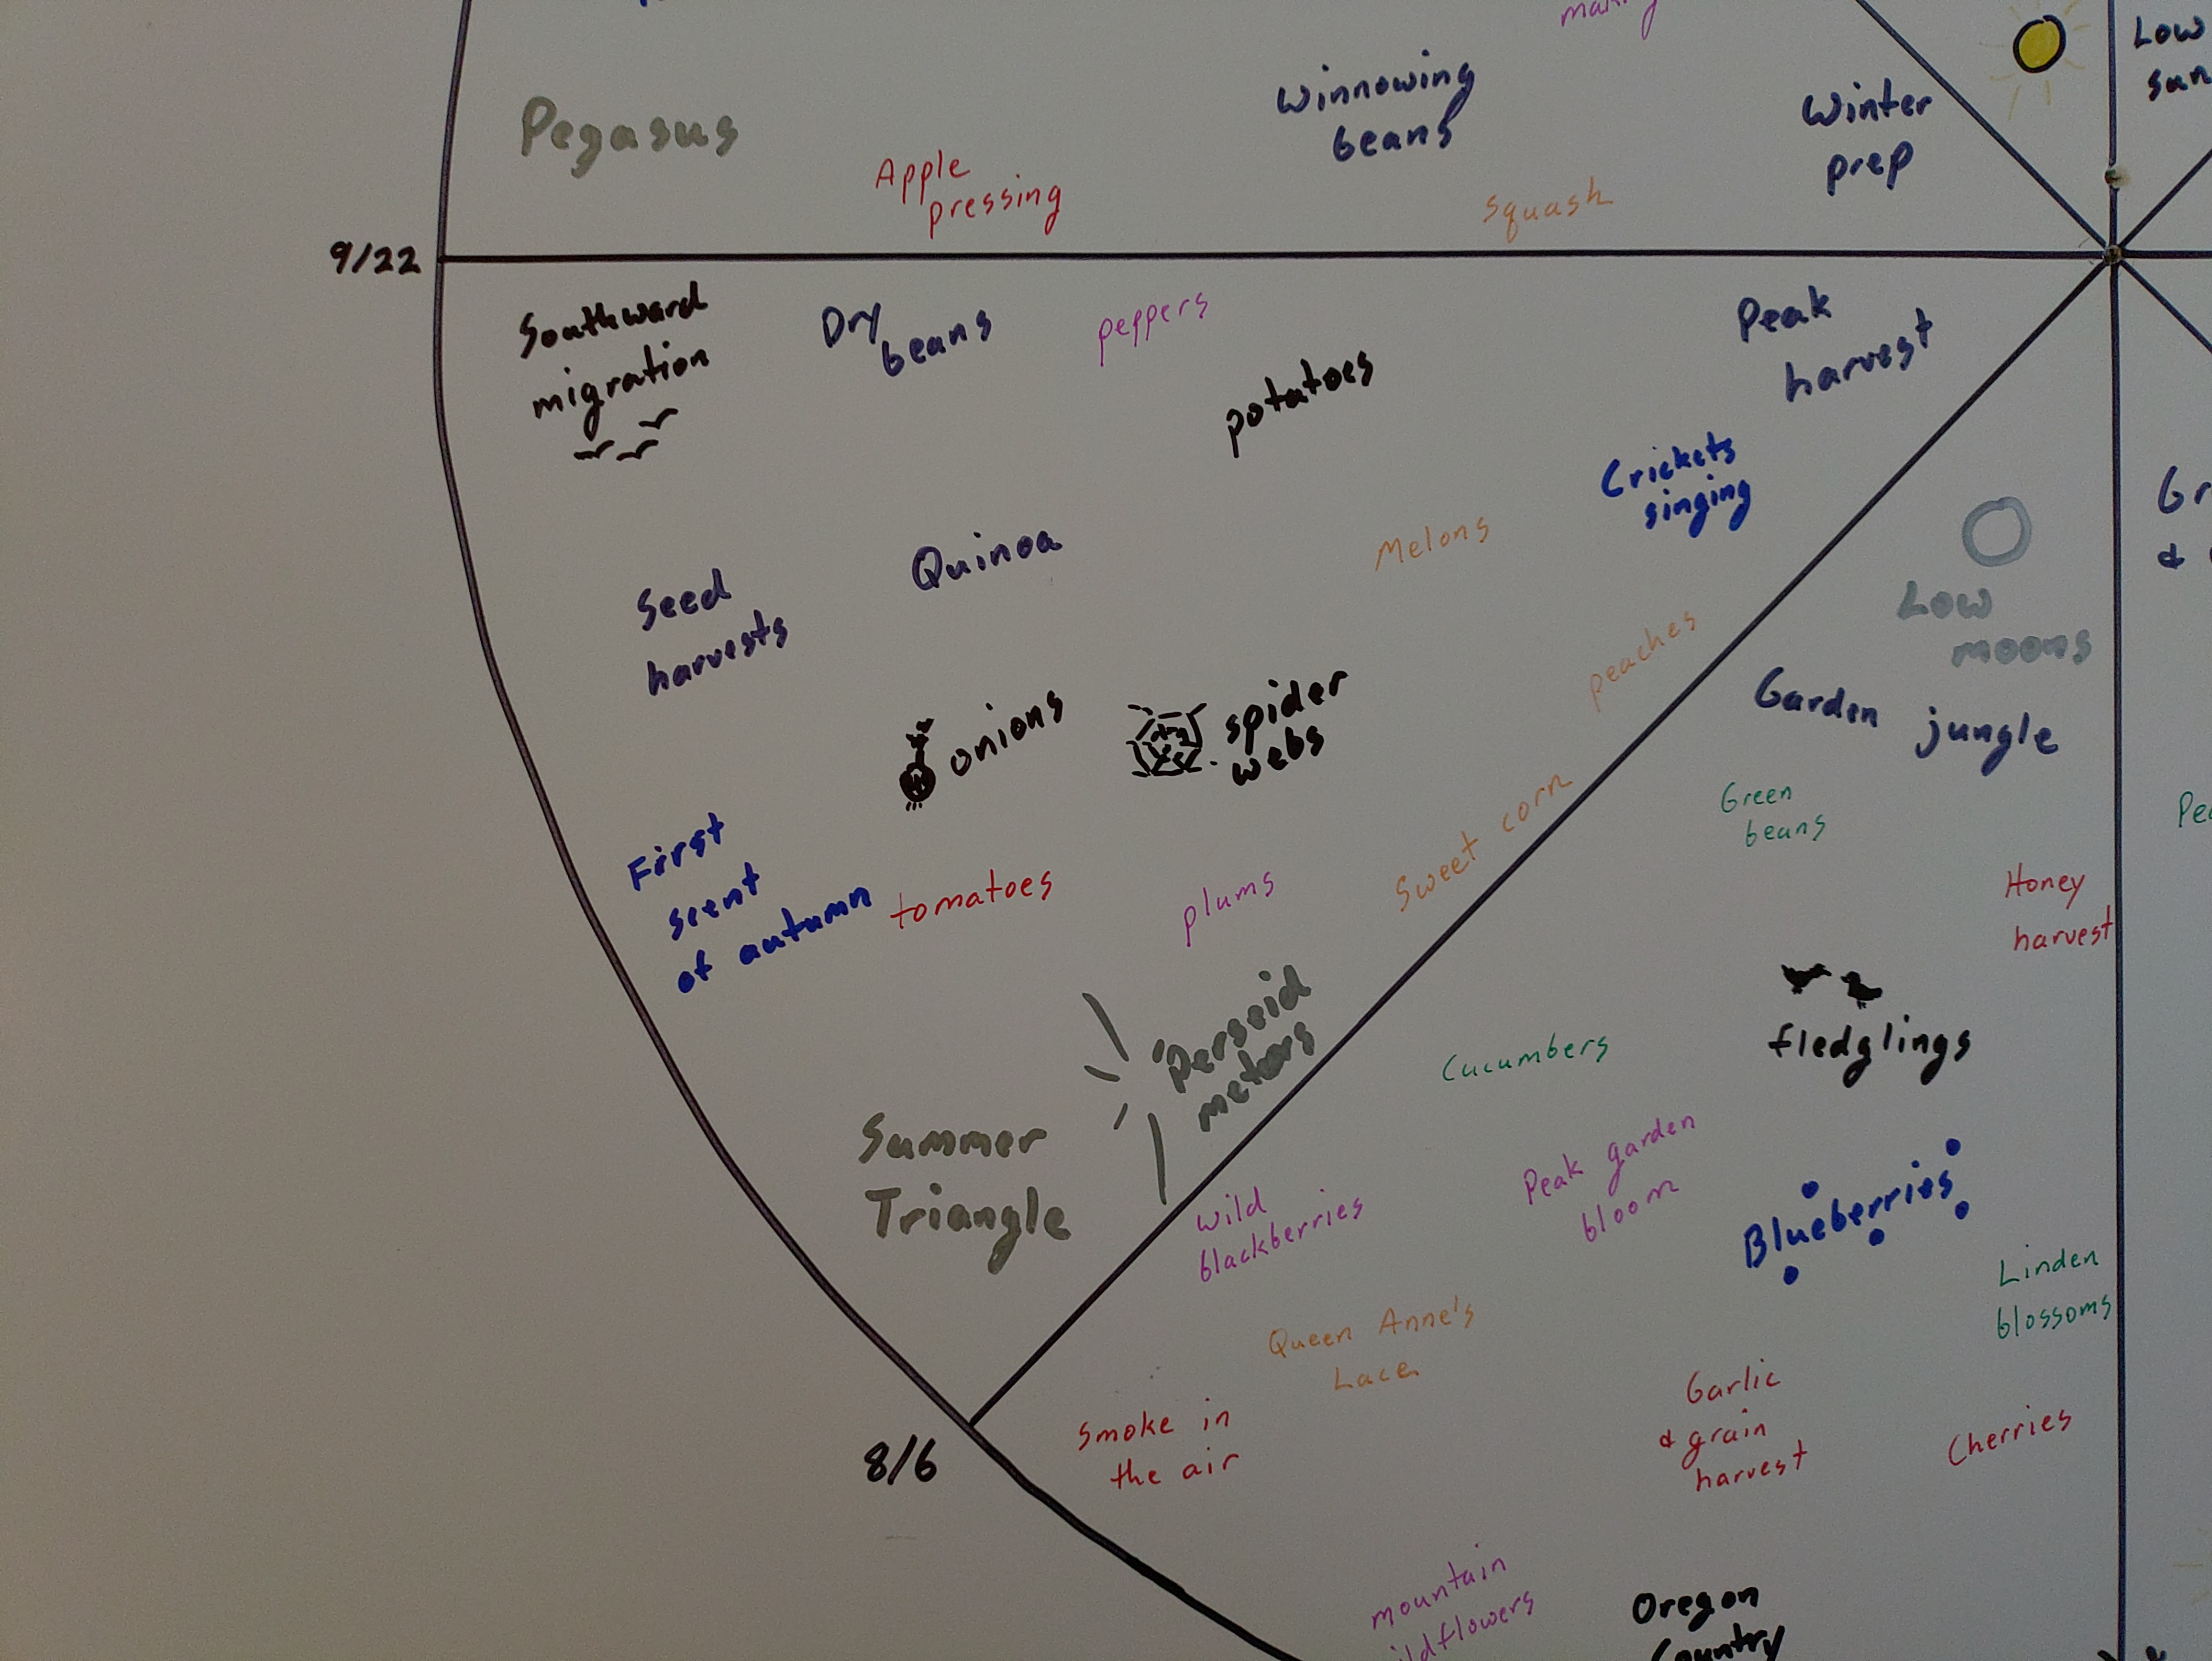 Low
sun
Winnowing
beans
Winter
prep
Pegasus
Apple
pressing
Squash
9/22
Southward
migration
Dry
beans
peppers
potatoes
Peak
harvest
Crickets
singing
Melons
Quinoa
Seed
harvests
peaches
Low
moons
Garden jungle
onions
spider
webs
Green
beans
Sweet corn
First
scent
of autumn
tomatoes
plums
Honey
harvest
Perseid
meteors
fledglings
Cucumbers
Summer
Triangle
Wild
blackberries
Peak garden
bloom
Blueberries
Linden
blossoms
Queen Anne's
Lace
Garlic
& grain
harvest
Cherries
Smoke in
the air
8/6
mountain
Oregon
Country